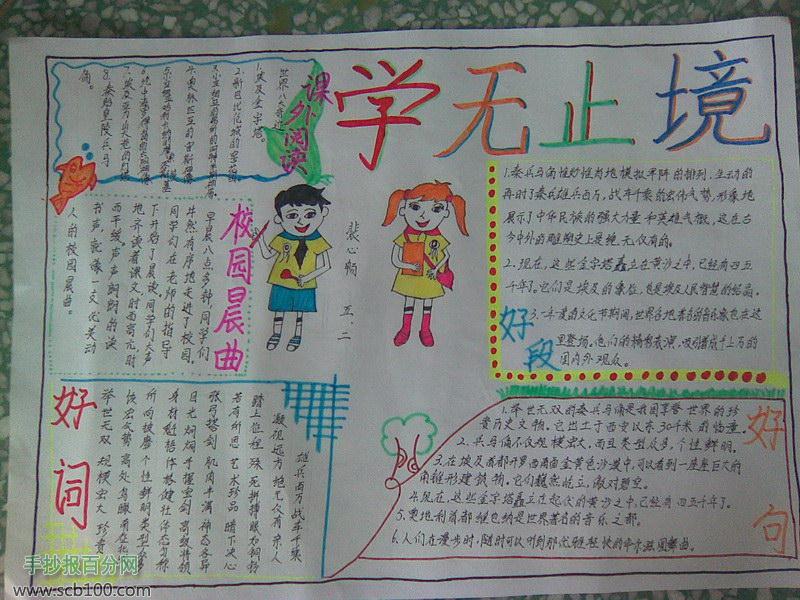 学无止境
课外阅读
世界八大奇迹
1.埃及金字塔。
8.秦始皇陵兵马
俑。
校园晨曲
早晨八点多钟,同学们
井然有序地走进了校园。
同学们在老师的指导
下开始了晨读,同学们大声
地齐读着课文,时而高亢,时
而平缓,声声朗朗的读
书声,就像一支优美动
人的校园晨曲。
裴心畅
五、二
好段
1.秦兵马俑惟妙惟肖地模拟军阵的排列,生动的
再时了秦兵雄兵百万,战车千乘的宏伟气势,形象地
展示了中华民族的强大力量和英雄气概,这在古
今中外的雕塑史上是绝无仅有的。
2.现在,这些金字塔矗立在黄沙之中,已经有四五
千年了。它们是埃及的象征,也是埃及人民智慧的结晶。
里登场。他们的精彩表演,吸引着成千上万的
国内外观众。
好词
雄兵百万 战车千乘
凝视远方 绝无仅有
若有所思 艺术珍品 暗下决心
肌肉丰满 神态各异
目光炯炯 手握宝剑
身材魁梧 体格健壮 体态匀称
所向披靡 个性鲜明 类型众多
举世无双 规模宏大
好句
1.举世无双的秦兵马俑是我国享誉世界的珍
贵历史文物,它出土于西安以东30千米的临潼。
2.兵马俑不仅规模宏大,而且类型众多,个性鲜明。
3.在埃及首都开罗西南面金黄色沙漠中,可以看到一座座巨大的
角锥形建筑物,它们巍然屹立,傲对碧空。
4.现在,这些金字塔矗立在起伏的黄沙之中,已经有四五千年了。
5.奥地利首都维也纳是世界著名的音乐之都。
6.人们在漫步时,随时可以听到那优雅轻快的华尔兹圆舞曲。
手抄报百分网
www.scb100.com